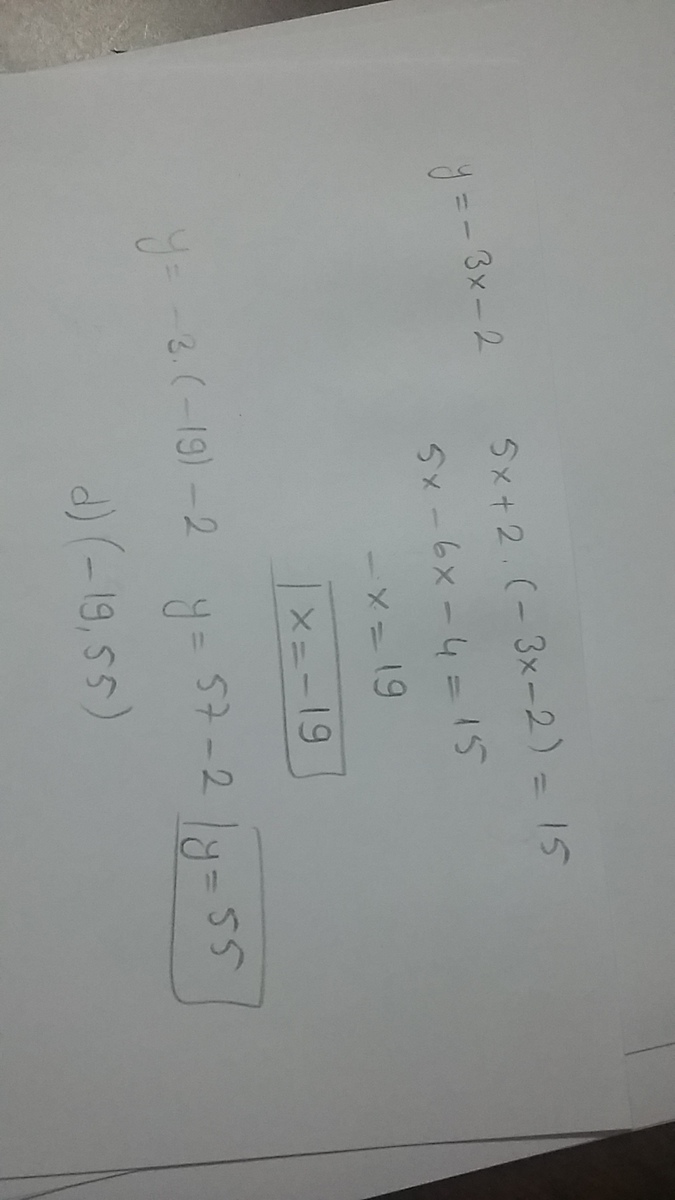 y = -3x - 2
5x + 2 . (-3x - 2) = 15
5x - 6x - 4 = 15
-x = 19
x = -19
y = -3 . (-19) - 2 y = 57 - 2 y = 55
d) (-19, 55)